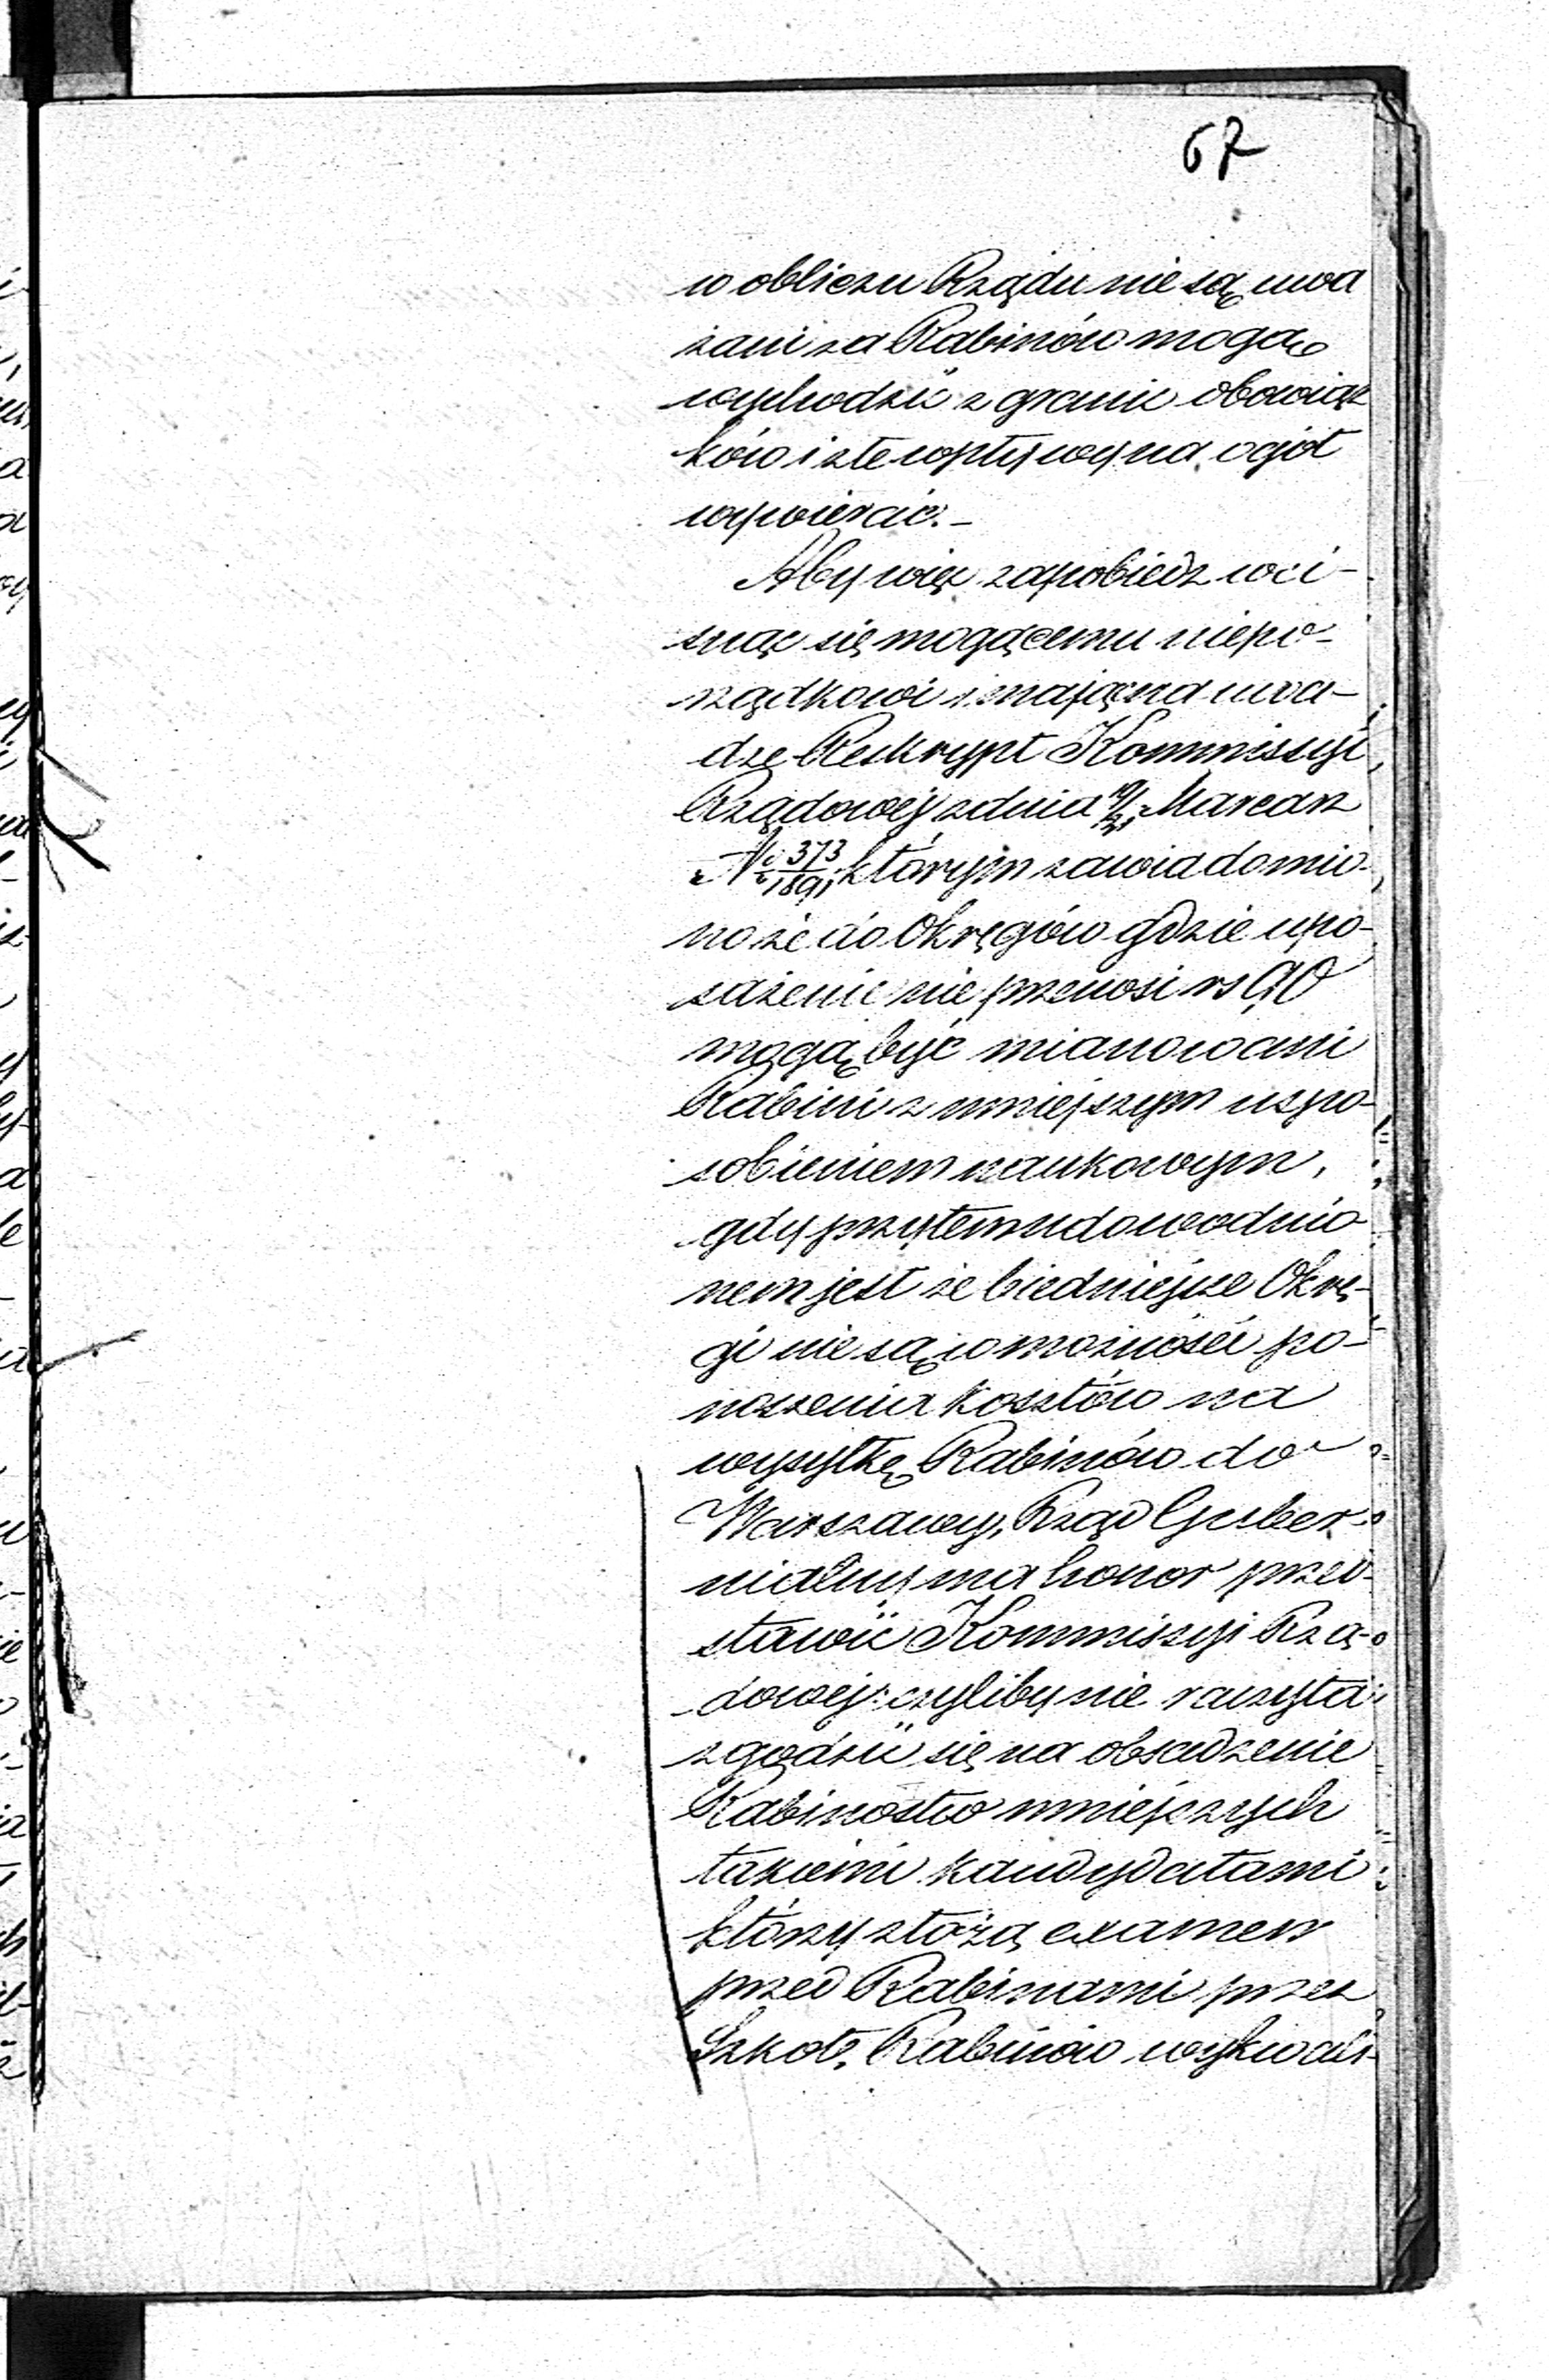 67
w obliczu Rządu nie są uwa
żani za Rabinów mogą
wychodzić z granic obowiąz
ków i złe wpływy na ogół
wywierać. –
Aby więc zapobiedz wci-
snąć się mogącemu niepo-
rządkowi i mając na uwa-
dze Reskrypt Kommissyi
Rządowej z dnia Marca r
N 373/1891 którym zawiadomio-
no że do Okręgów gdzie upo-
sażenie nie przenosi rs 90
mogą być mianowani
Rabini z mniejszym uspo-
sobieniem naukowym,
gdy przytem udowodnio
nem jest że biedniejsze Okrę-
gi nie są w możności po-
noszenia kosztów na
wysyłkę Rabinów do
Warszawy, Rząd Guber-
nialny ma honor przed-
stawić Kommissyi Rzą-
dowej: czyliby nie raczyła
zgodzić się na obsadzenie
Rabinostw mniejszych
takiemi kandydatami
którzy złożą examen
przed Rabinami przez
Szkołę Rabinów wykwali-